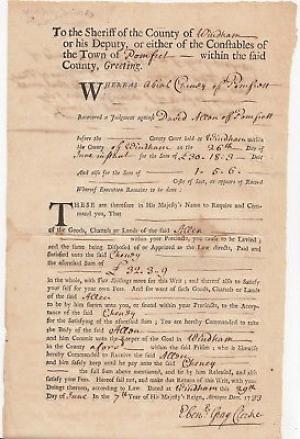 To the Sheriff of the County of Windham
or his Deputy, or either of the Constables of
the Town of Pomfret within the said
County, Greeting.
WHEREAS Abial Cheney of Pomfrett
Recovered a Judgment against David Allon off Pomfrett
before the County Court held at Windham within
the County of Windham on the 26th Day of
June instant for the Sum of £30-18-3 Debt
And also for the Sum of 1-5-6
Costs of Suit, as appears of Record
Whereof Execution Remains to be done:
THESE are therefore in His Majesty's Name to Require and Command you, That
of the Goods, Chattels or Lands of the said Allen
within your Precincts, you cause to be Levied;
and the same being Disposed of or Appraised as the Law directs, Paid and
satisfied unto the said Cheney
the aforesaid Sum of
£32-3-9
in the whole, with Five Shillings more for this Writ; and thereof also to Satisfy
your self for your own Fees. And for want of such Goods, Chattels or Lands
of the said Allen
to be by him shewn unto you, or found within your Precincts, to the Acceptance
of the said Cheney
for the Satisfying of the aforesaid Sums; You are hereby Commanded to take
the Body of the said Allon
and him Commit unto the Keeper of the Goal in Windham
in the County afors within the said Prison; who is likewise
hereby Commanded to Receive the said Allon
and him safely to keep until he pay unto the said Cheney
the full Sum above mentioned, and be by him Released, and also
satisfy your Fees. Hereof fail not, and make due Return of this Writ, with
your Doings thereon, according to Law. Dated at Windham the 29th
day of June In the 7th Year of His Majesty's Reign, Annoque Dom. 1733
Ebenr Gray Clerke